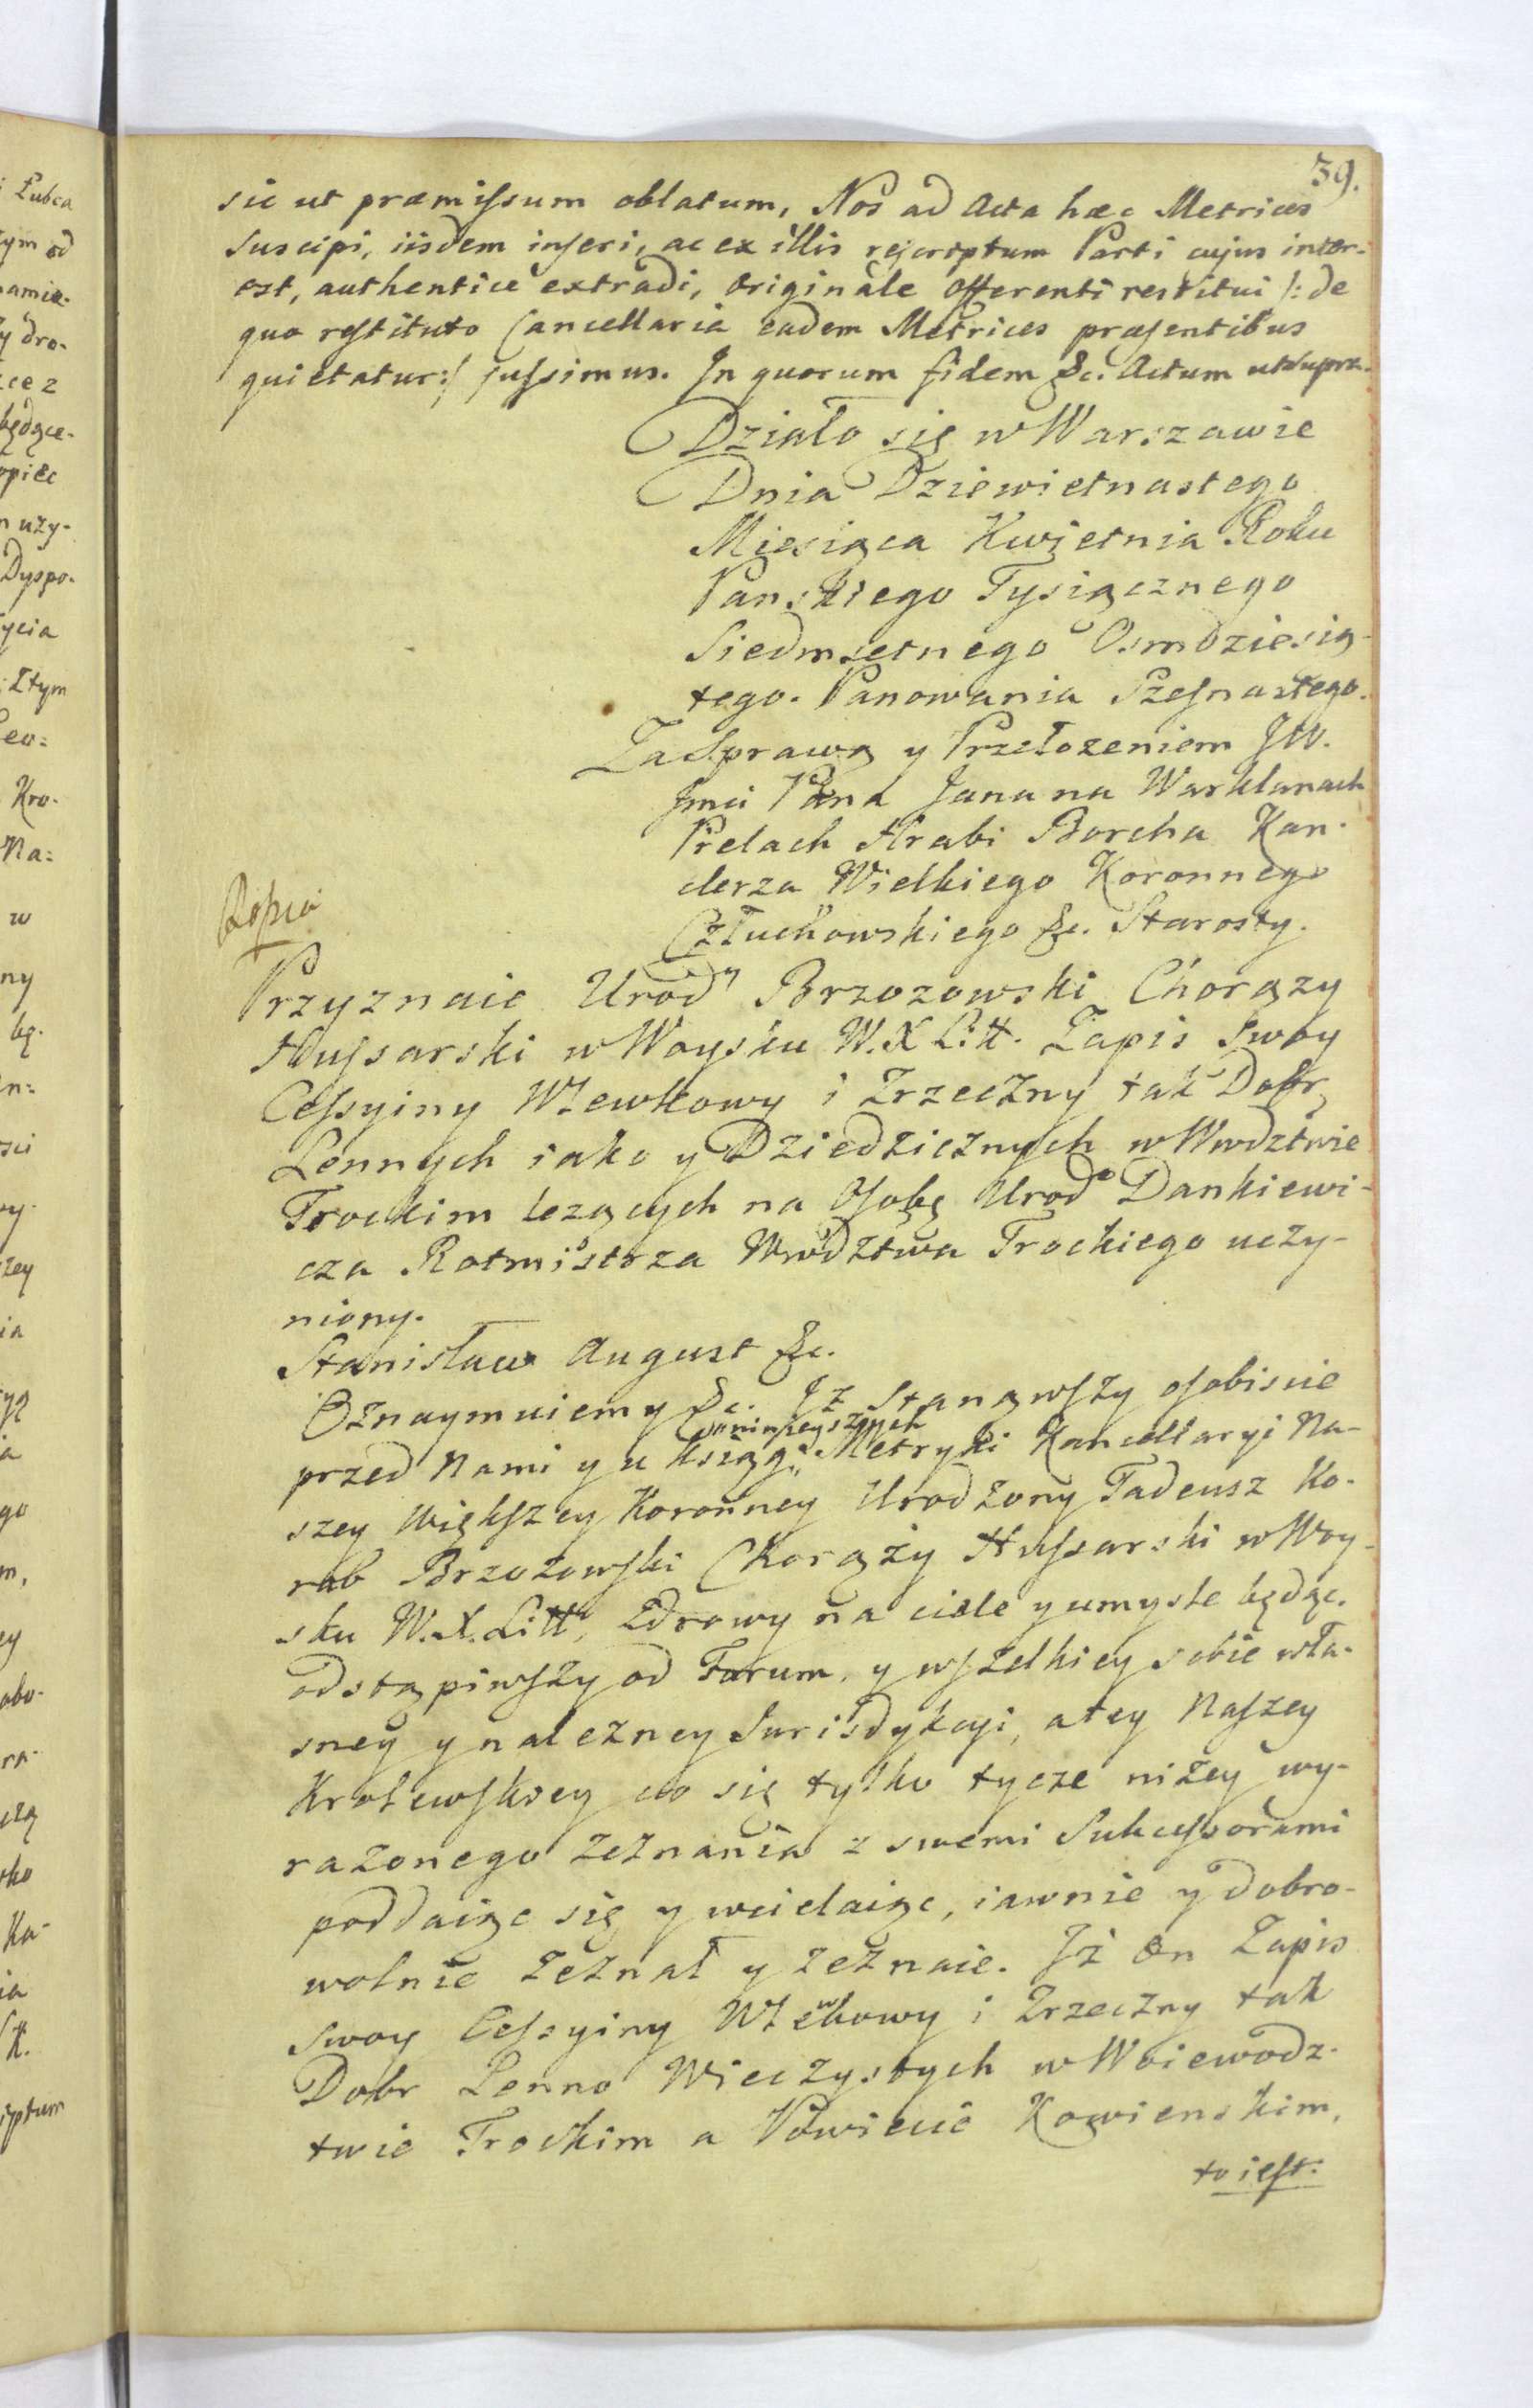 39.
sic ut præmissum oblatum, Nos ad Acta hæc Metrices
suscipi, iisdem inseri, ac ex illis rescriptum Parti cujus inter-
est, authentice extradi, originale offerenti restitui /: de
quo restituto Cancellaria eadem Metrices præsentibus
quietatur :/ jussimus. In quorum fidem &c. Actum ut supra.
Działo się w Warszawie
Dnia Dziewietnastego
Miesiąca Kwietnia Roku
Panskiego Tysiącznego
Siedmsetnego Osmdziesią-
tego. Panowania Szesnastego.
Za Sprawą y Przełozeniem JW.
Jmci Pana Jana na Warklanach
Prelach Hrabi Borcha Kan-
clerza Wielkiego Koronnego
Człuchowskiego &c. Starosty.
Przyznaie Urod^y Brzozowski Chorązy
Hussarski w Woysku W. X Litt. Zapis Swoy
Cessyiny Wlewkowy i Zrzeczny tak Dobr
Lennych iako y Dziedzicznych w Wwdztwie
Trockim lezących na Osobę Urod^o Dankiewi-
cza Rotmistrza Wwdztwa Trockiego uczy-
niony.
Stanisław August &c.
Oznaymuiemy &c. Iż Stanąwszy osobiscie
przed Nami y u Ksiąg ninieyszych Metryki Kancellaryi Na-
szey Większey Koronney Urodzony Tadeusz Ko-
rab Brzozowski Chorąży Hussarski w Woy-
sku W. X. Litt^o, Zdrowy na ciele y umysle będąc.
odstąpiwszy od Forum, y wszelkiey sobie wła-
sney y nalezney Jurisdykcyi, a tey Naszey
Krolewskiey co się tylko tycze niżey wy-
razonego zeznania z swemi Sukcessorami
poddaiąc się y wcielaiąc, iawnie y dobro-
wolnie zeznał y zeznaie. Iż On Zapis
swoy Cessyiny Wlewkowy i Zrzeczny tak
Dobr Lenno Wieczystych w Woiewodz-
twie Trockim a Powiecie Kowienskim,
to iest: